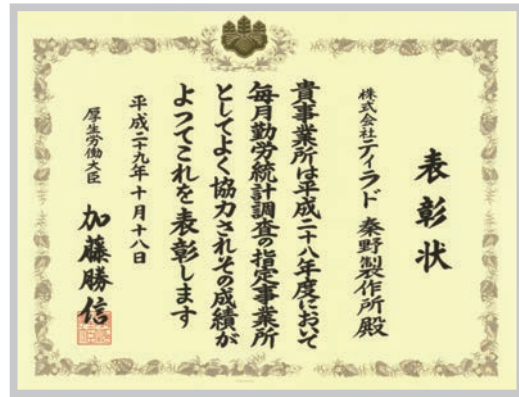 表彰状
株式会社ティラド 秦野製作所殿
貴事業所は平成二十八年度において
毎月勤労統計調査の指定事業所
としてよく協力されその成績が
よってこれを表彰します
平成二十九年十月十八日
厚生労働大臣 加藤勝信